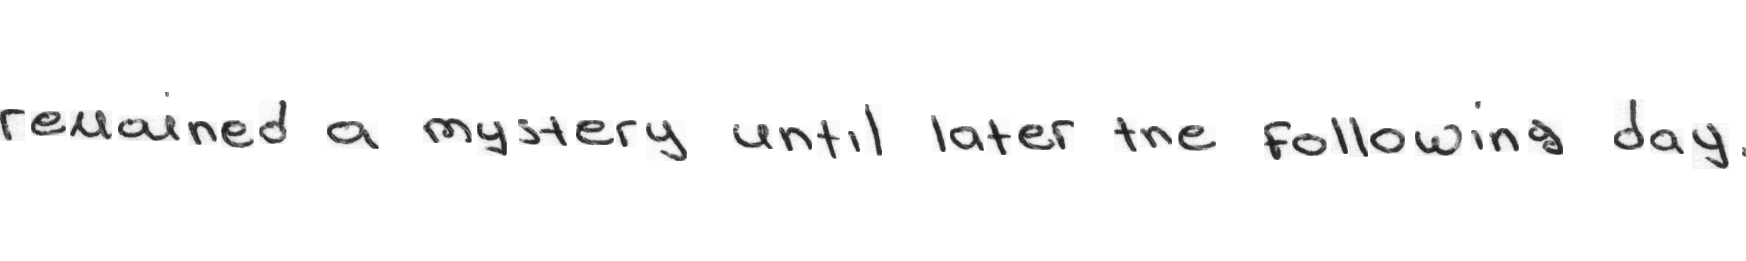 remained a mystery until later the following day.